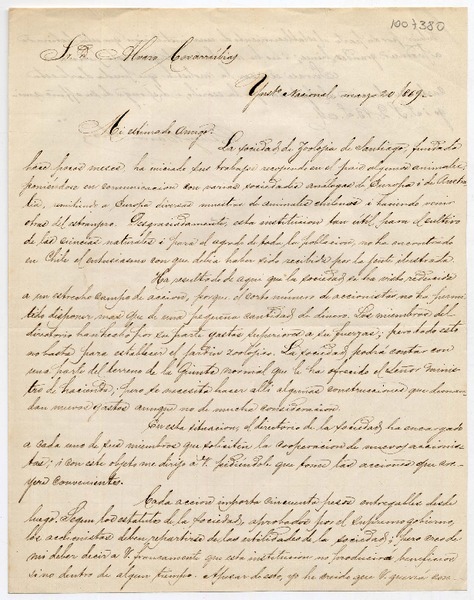 1007380
Sr. D. Alvaro Covarrúbias
Instº. Nacional, marzo 20/869.
Mi estimado amigo:
La sociedad de Zoolojia de Santiago, fundada
hace pocos meses, ha iniciado sus trabajos recojiendo en el pais algunos animales,
poniendose en comunicacion con varias sociedades analogas de Europa i de Austra
lia, remitiendo a Europa diversas muestras de animales chilenos i haciendo venir
otras del estranjero. Desgraciadamente, esta institucion tan útil para el cultivo
de las ciencias naturales i para el agrado de toda la poblacion, no ha encontrado
en Chile el entusiasmo con que debia haber sido recibida por la jente ilustrada.
Ha resultado de aquí que la sociedad se ha visto reducida
a un estrecho campo de accion, porque el corto número de accionistas no ha permi-
tido disponer mas que de una pequeña cantidad de dinero. Los miembros del
directorio han hecho por su parte gastos superiores a su fuerzas; pero todo esto
no basta para establecer el jardin zoolójico. La sociedad podrá contar con
una parte del terreno de la Quinta normal que le ha ofrecido el señor minis-
tro de hacienda; pero se necesita hacer allí algunas construcciones que deman-
dan nuevos gastos aunque no de mucha consideracion.
En esta situacion, el directorio de la sociedad ha encargado
a cada uno de sus miembros que soliciten la cooperacion de nuevos accionis-
tas; i con este objeto me dirijo a V. pidiéndole que tome las acciones que con-
yera convenientes.
Cada accion importa cincuenta pesos entregables desde
luego. Segun los estatutos de la sociedad, aprobados por el supremo gobierno,
los accionistas deben repartirse de las entradas de la sociedad; pero creo de
mi deber decir a V. francamente que esta institucion no producirá beneficios
sino dentro de algun tiempo. Apesar de esto, yo he creido que V. querria con-